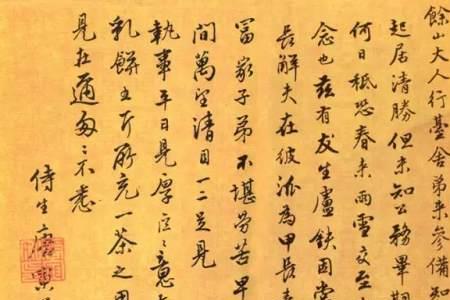 餘山大人行臺舍弟來參備知
起居清勝但未知公務畢期
何日秪恐春來雨雪交至
念也茲有友生盧鎖因當
長解夫在彼派為甲長
富家子弟不堪勞苦早
間萬望清目一二足見
執事平日見厚
乳餅五斤所充一茶之用
見在邇匆匆不悉
侍生唐寅